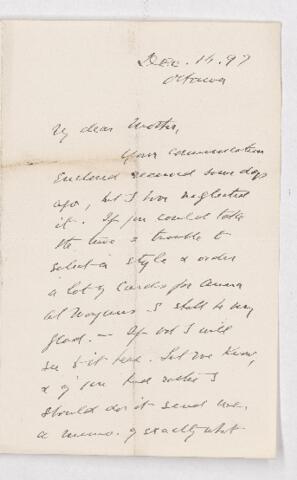 Dec. 14. 97
Ottawa
My dear Mother,
Your communication
enclosed received some days
ago, but I have neglected
it. If you could take
the time & trouble to
select a style & order
a lot of cards for Emma
at I shall be very
glad. — If not I will
see to it here. Let me know,
& if you had rather I
should do it send me
a memo. of exactly what